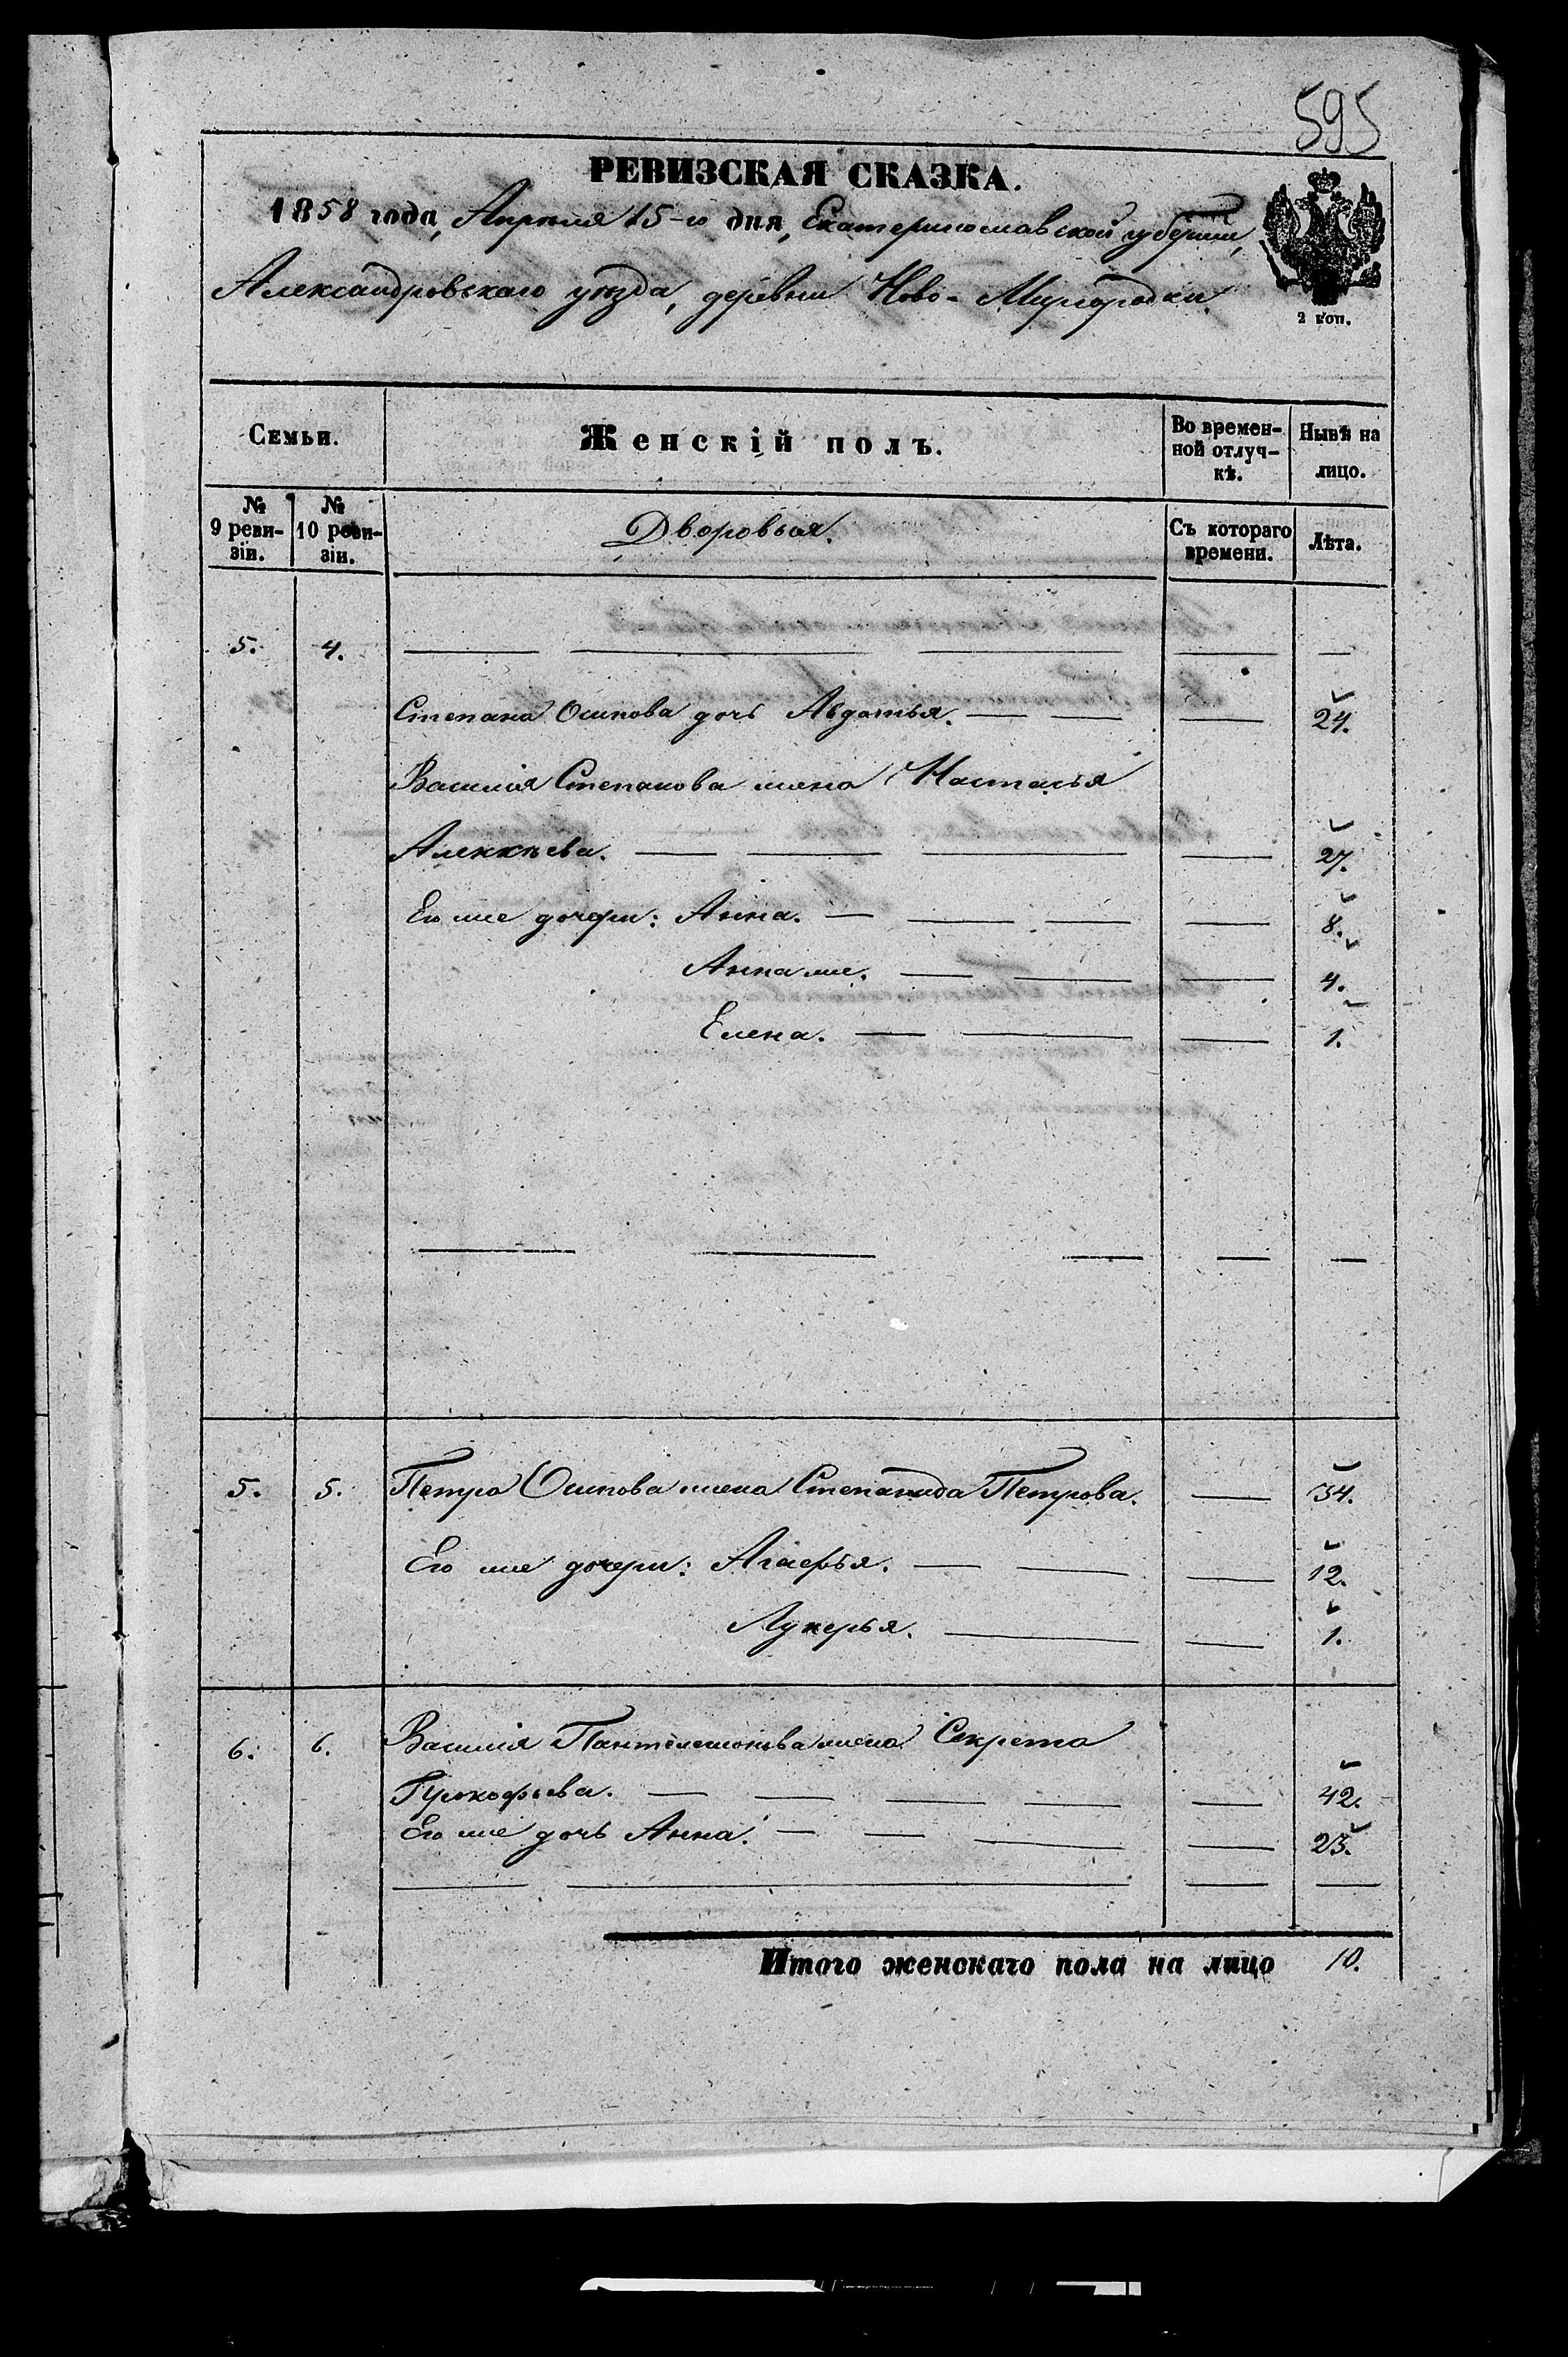 595
РЕВИЗСКАЯ СКАЗКА.
1858 года, Апрѣля 15-го дня, Екатеринославской губерніи,
Александровскаго уѣзда, деревни Ново-Миргородки.
2 коп.
Семьи. Женскій полъ. Во времен-ной отлуч-кѣ. Нынѣ на лицо.
№ 9 реви-зіи. № 10 реви-зіи. Дворовыя. Съ котораго времени. Лѣта.
5. 4.
Степана Осипова дочь Авдотья. 24.
Василія Степанова жена Настасья
Алексѣева. 27.
Его же дочери: Анна. 8.
Анна же. 4.
Елена. 1.
5. 5. Петра Осипова жена Степанида Петрова. 34.
Его же дочери: Агафья. 12.
Лукерья. 1.
6. 6. Василія Пантелемонова жена Секрета
Прокофьева. 42.
Его же дочь Анна. 23.
Итого женскаго пола на лицо 10.